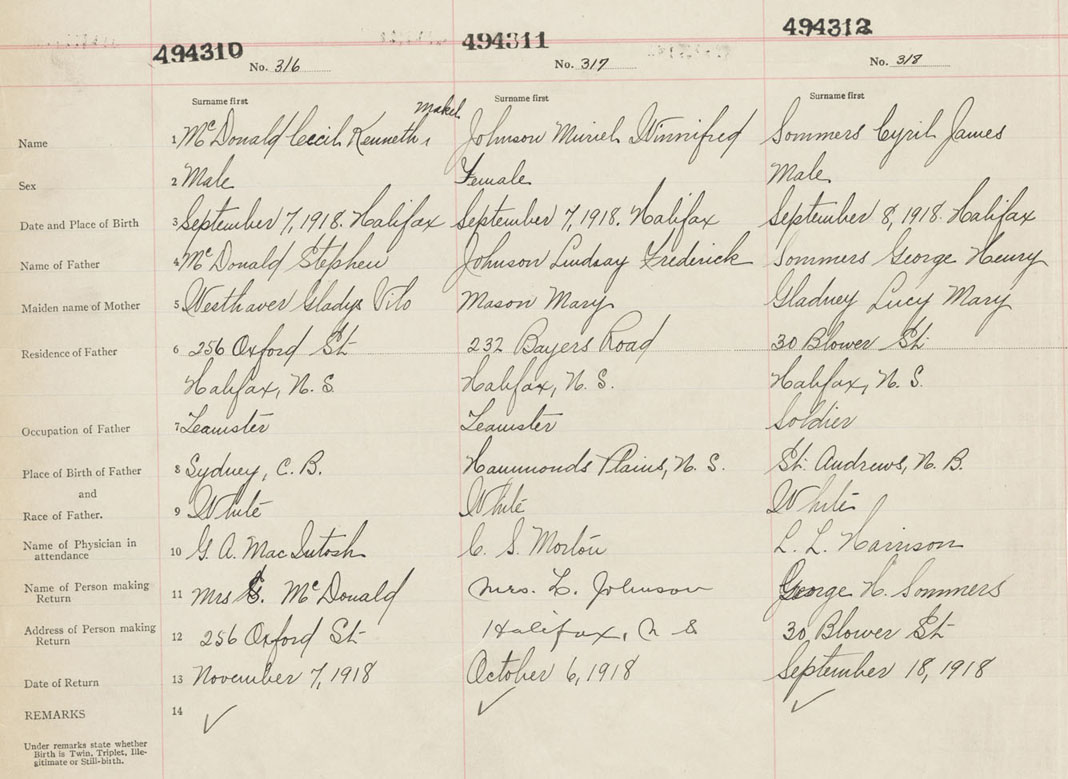 494310 494311 494312
No. 316 No. 317 No. 318
Surname first Surname first Surname first
Name 1 McDonald Cecil Kenneth Johnson Muriel Winnifred Sommers Cyril James
Sex 2 Male Female Male
Date and Place of Birth 3 September 7, 1918. Halifax September 7, 1918. Halifax September 8, 1918. Halifax
Name of Father 4 McDonald Stephen Johnson Lindsay Frederick Sommers George Henry
Maiden name of Mother 5 Westhaver Gladys Mason Mary Gladney Lucy Mary
Residence of Father 6 256 Oxford St. 232 Bayers Road 30 Blower St.
Halifax, N. S. Halifax, N. S. Halifax, N. S.
Occupation of Father 7 Teamster Teamster Soldier
Place of Birth of Father 8 Sydney, C. B. Hammonds Plains, N. S. St. Andrews, N. B.
and
Race of Father. 9 White White White
Name of Physician in
attendance 10 G. A. MacIntosh C. S. Morton L. L. Harrison
Name of Person making
Return 11 Mrs S. McDonald Mrs. L. Johnson George H. Sommers
Address of Person making
Return 12 256 Oxford St. Halifax, N S 30 Blower St.
Date of Return 13 November 7, 1918 October 6, 1918 September 18, 1918
REMARKS 14 ✓ ✓ ✓
Under remarks state whether
Birth is Twin, Triplet, Ille-
gitimate or Still-birth.